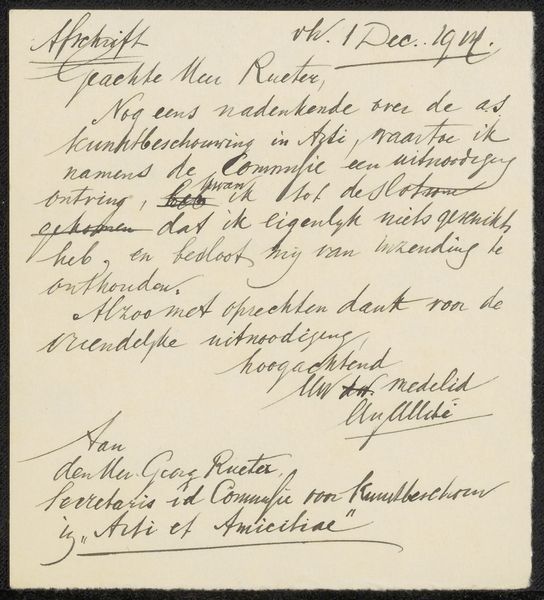 Afschrift
1 Dec. 1914.
Geachte Heer Rueter,
Nog eens nadenkende over de as
kunstbeschouwing in Arti, waartoe ik
namens de Commissie een uitnoodiging
ontving, kwam ik tot de slotsom
gekomen dat ik eigenlijk niets geschikts
heb, en besloot mij van inzending te
onthouden.
Alzoo met oprechten dank voor de
vriendelijke uitnoodiging,
hoogachtend
Uw dw. medelid
Aug Allebé
Aan
den Heer Georg Rueter,
Secretaris i/d Commissie voor Kunstbeschouw
ig „Arti et Amicitiae"